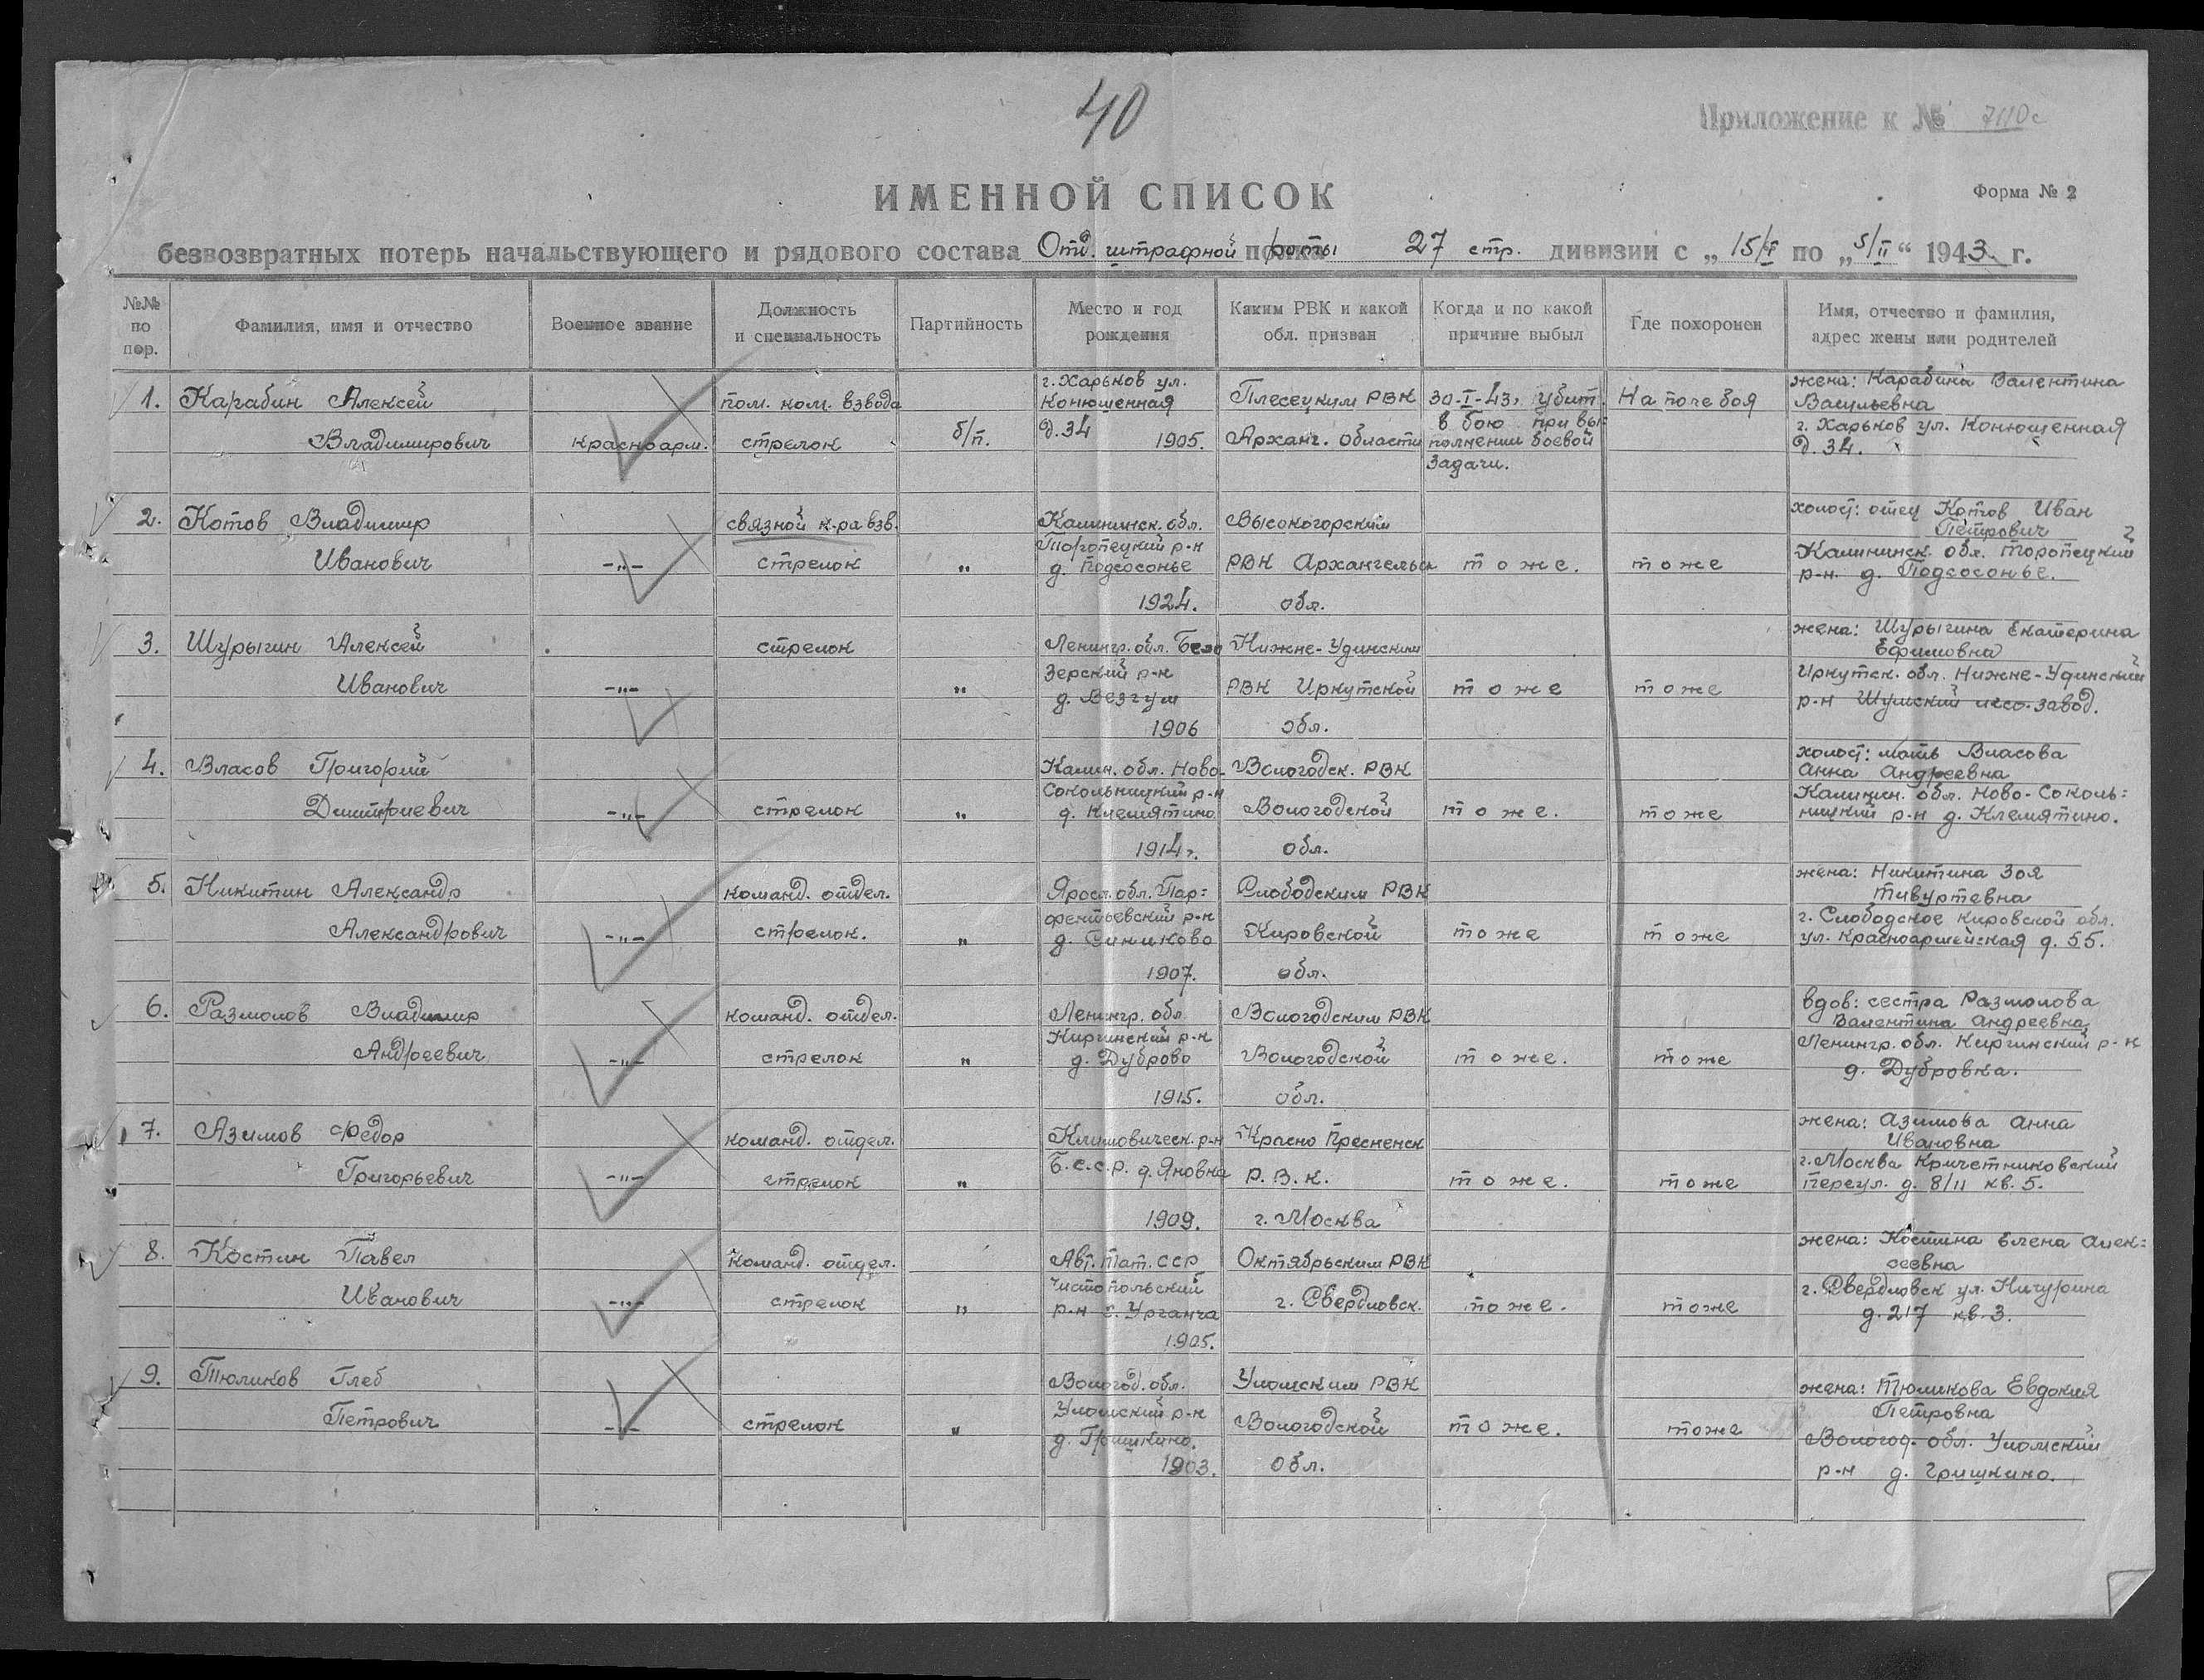 40
Приложение к № 7110с
ИМЕННОЙ СПИСОК
Форма № 2
безвозвратных потерь начальствующего и рядового состава Отд. штрафной роты 27 стр. дивизии с „ 15/I по „ 5/II “ 1943 г.
№№ по пор.
Фамилия, имя и отчество
Военное звание
Должность и специальность
Партийность
Место и год рождения
Каким РВК и какой обл. призван
Когда и по какой причине выбыл
Где похоронен
Имя, отчество и фамилия, адрес жены или родителей
1.
Карабин Алексей
Владимирович
красноарм.
пом. ком. взвода
стрелок
б/п.
г. Харьков ул.
Конюшенная
д. 34
1905.
Плесецким РВК
Арханг. области
30-I-43г. убит
в бою при вы-
полнении боевой
задачи.
На поле боя
жена: Карабина Валентина
Васильевна
г. Харьков ул. Конюшенная
д. 34.
2.
Котов Владимир
Иванович
-„-
связной к-ра взв.
стрелок
„
Калининск. обл.
Торопецкий р-н
д. Подсосонье
1924.
Высокогорским
РВК Архангельск
обл.
тоже.
тоже
холост: отец Котов Иван
Петрович
Калининск. обл. Торопецкий
р-н д. Подсосонье.
3.
Шурыгин Алексей
Иванович
-„-
стрелок
„
Ленингр. обл. Бело
зерский р-н
д. Везгум
1906
Нижне-Удинским
РВК Иркутской
обл.
тоже
тоже
жена: Шурыгина Екатерина
Ефимовна
Иркутск. обл. Нижне-Удинский
р-н Шумский лесо-завод.
4.
Власов Григорий
Дмитриевич
-„-
стрелок
„
Калин. обл. Ново-
Сокольницкий р-н
д. Клемятино
1914г.
Вологодск. РВК
Вологодской
обл.
тоже.
тоже
холост: мать Власова
Анна Андреевна
Калинин. обл. Ново-Соколь=
ницкий р-н д. Клемятино.
5.
Никитин Александр
Александрович
-„-
команд. отдел.
стрелок.
„
Яросл. обл. Пар=
фентьевский р-н
д. Синиково
1907.
Слободским РВК
Кировской
обл.
тоже
тоже
жена: Никитина Зоя
Тивуртевна
г. Слободское Кировской обл.
ул. Красноармейская д. 55.
6.
Размолов Владимир
Андреевич
-„-
команд. отдел.
стрелок
„
Ленингр. обл.
Киришский р-н
д. Дуброво
1915.
Вологодским РВК
Вологодской
обл.
тоже.
тоже
вдов: сестра Размолова
Валентина Андреевна
Ленингр. обл. Киришский р-н
д. Дубровка.
7.
Азимов Федор
Григорьевич
-„-
команд. отдел.
стрелок
„
Климовическ. р-н
Б.С.С.Р. д. Яновка
1909.
Красно Пресненск
Р. В. К.
г. Москва
тоже.
тоже
жена: Азимова Анна
Ивановна
г. Москва Кричетниковский
переул. д. 8/11 кв. 5.
8.
Костин Павел
Иванович
-„-
команд. отдел.
стрелок
„
Авт. Тат. ССР
Чистопольский
р-н с. Урганча
1905.
Октябрьским РВК
г. Свердловск.
тоже.
тоже
жена: Костина Елена Алек=
сеевна
г. Свердловск ул. Ничурина
д. 217 кв. 3.
9.
Тюликов Глеб
Петрович
-„-
стрелок
„
Вологод. обл.
Уломский р-н
д. Гришкино.
1903.
Уломским РВК
Вологодской
обл.
тоже.
тоже
жена: Тюликова Евдокия
Петровна
Вологод. обл. Уломский
р-н д. Гришкино.